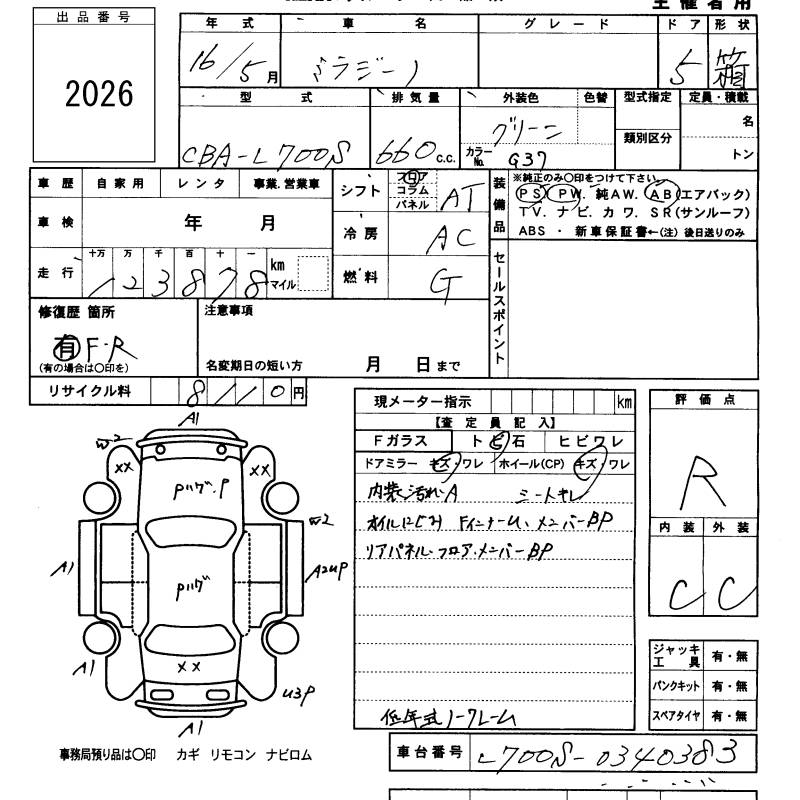 出品番号
2026
年式 車名 グレード ドア 形状
16/5月 ミラジーノ 5 箱
型式 排気量 外装色 色替 型式指定 定員・積載
CBA-L700S 660c.c. グリーン カラーNo. G37 類別区分 名 トン
車歴 自家用 レンタ 事業.営業車
車検 年 月
走行 十万 万 千 百 十 一 km マイル
123878
シフト フロア コラム パネル AT
冷房 AC
燃料 G
装備品
※純正のみ○印をつけて下さい。
PS. PW. 純AW. AB(エアバック)
TV. ナビ. カワ. SR(サンルーフ)
ABS ・ 新車保証書←(注) 後日送りのみ
セールスポイント
修復歴 箇所
有 F・R
(有の場合は○印を)
注意事項
名変期日の短い方 月 日まで
リサイクル料 8110円
現メーター指示 km
【査定員記入】
Fガラス トビ石 ヒビワレ
ドアミラー キズ・ワレ ホイール(CP) キズ・ワレ
内装汚れ・A シートキレ
オイルにじみ Fインナー・ム、メンバーBP
リアパネル・フロア・メンバーBP
低年式ノークレーム
評価点
R
内装 外装
C C
ジャッキ工具 有・無
パンクキット 有・無
スペアタイヤ 有・無
A1
W2
XX XX
Pハゲ・P
W2
A1 A2UP
Pハゲ
XX
A1 U3P
A1
事務局預り品は○印 カギ リモコン ナビロム
車台番号 L700S-0340383